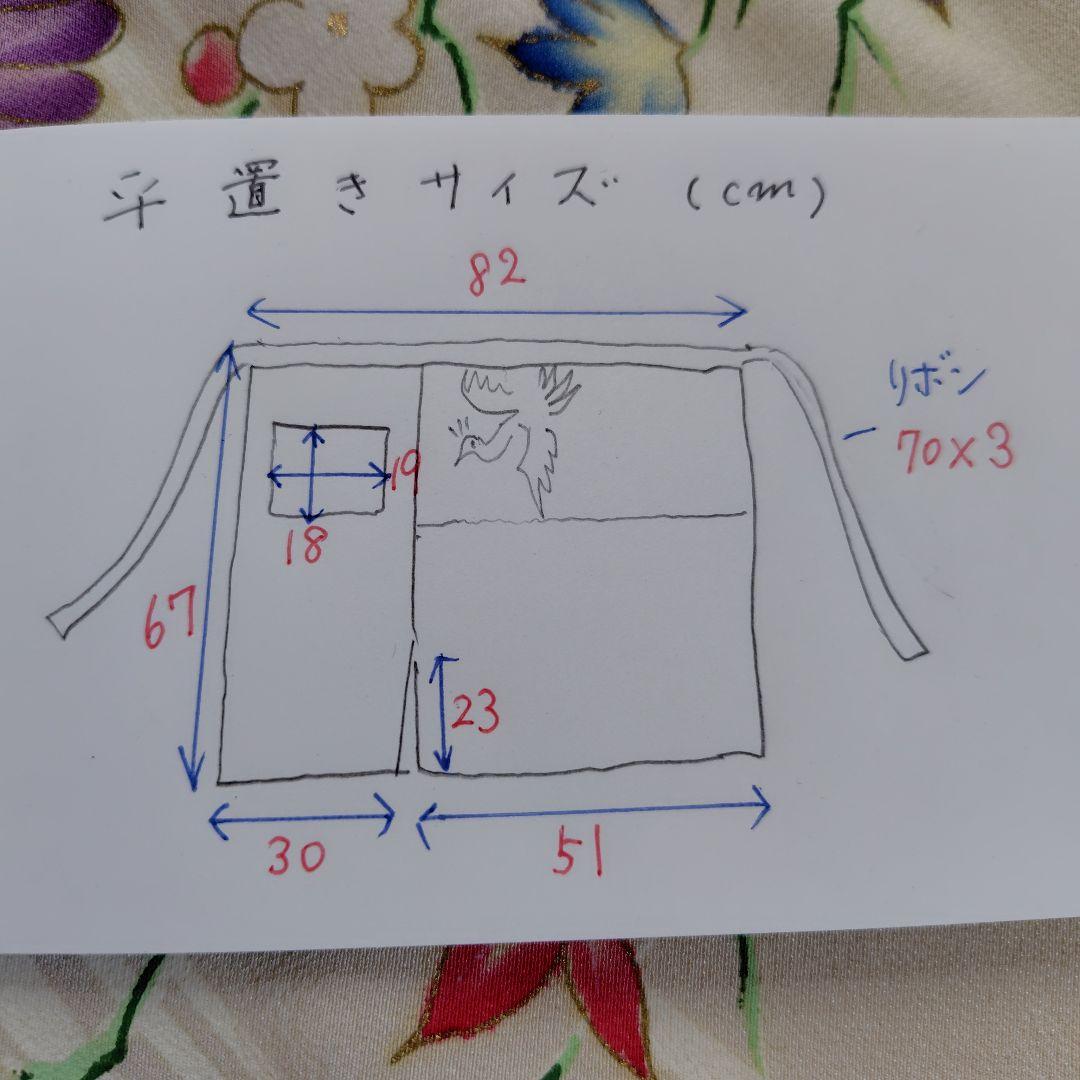 平置きサイズ (cm)
82
リボン
70×3
19
18
67
23
30
51